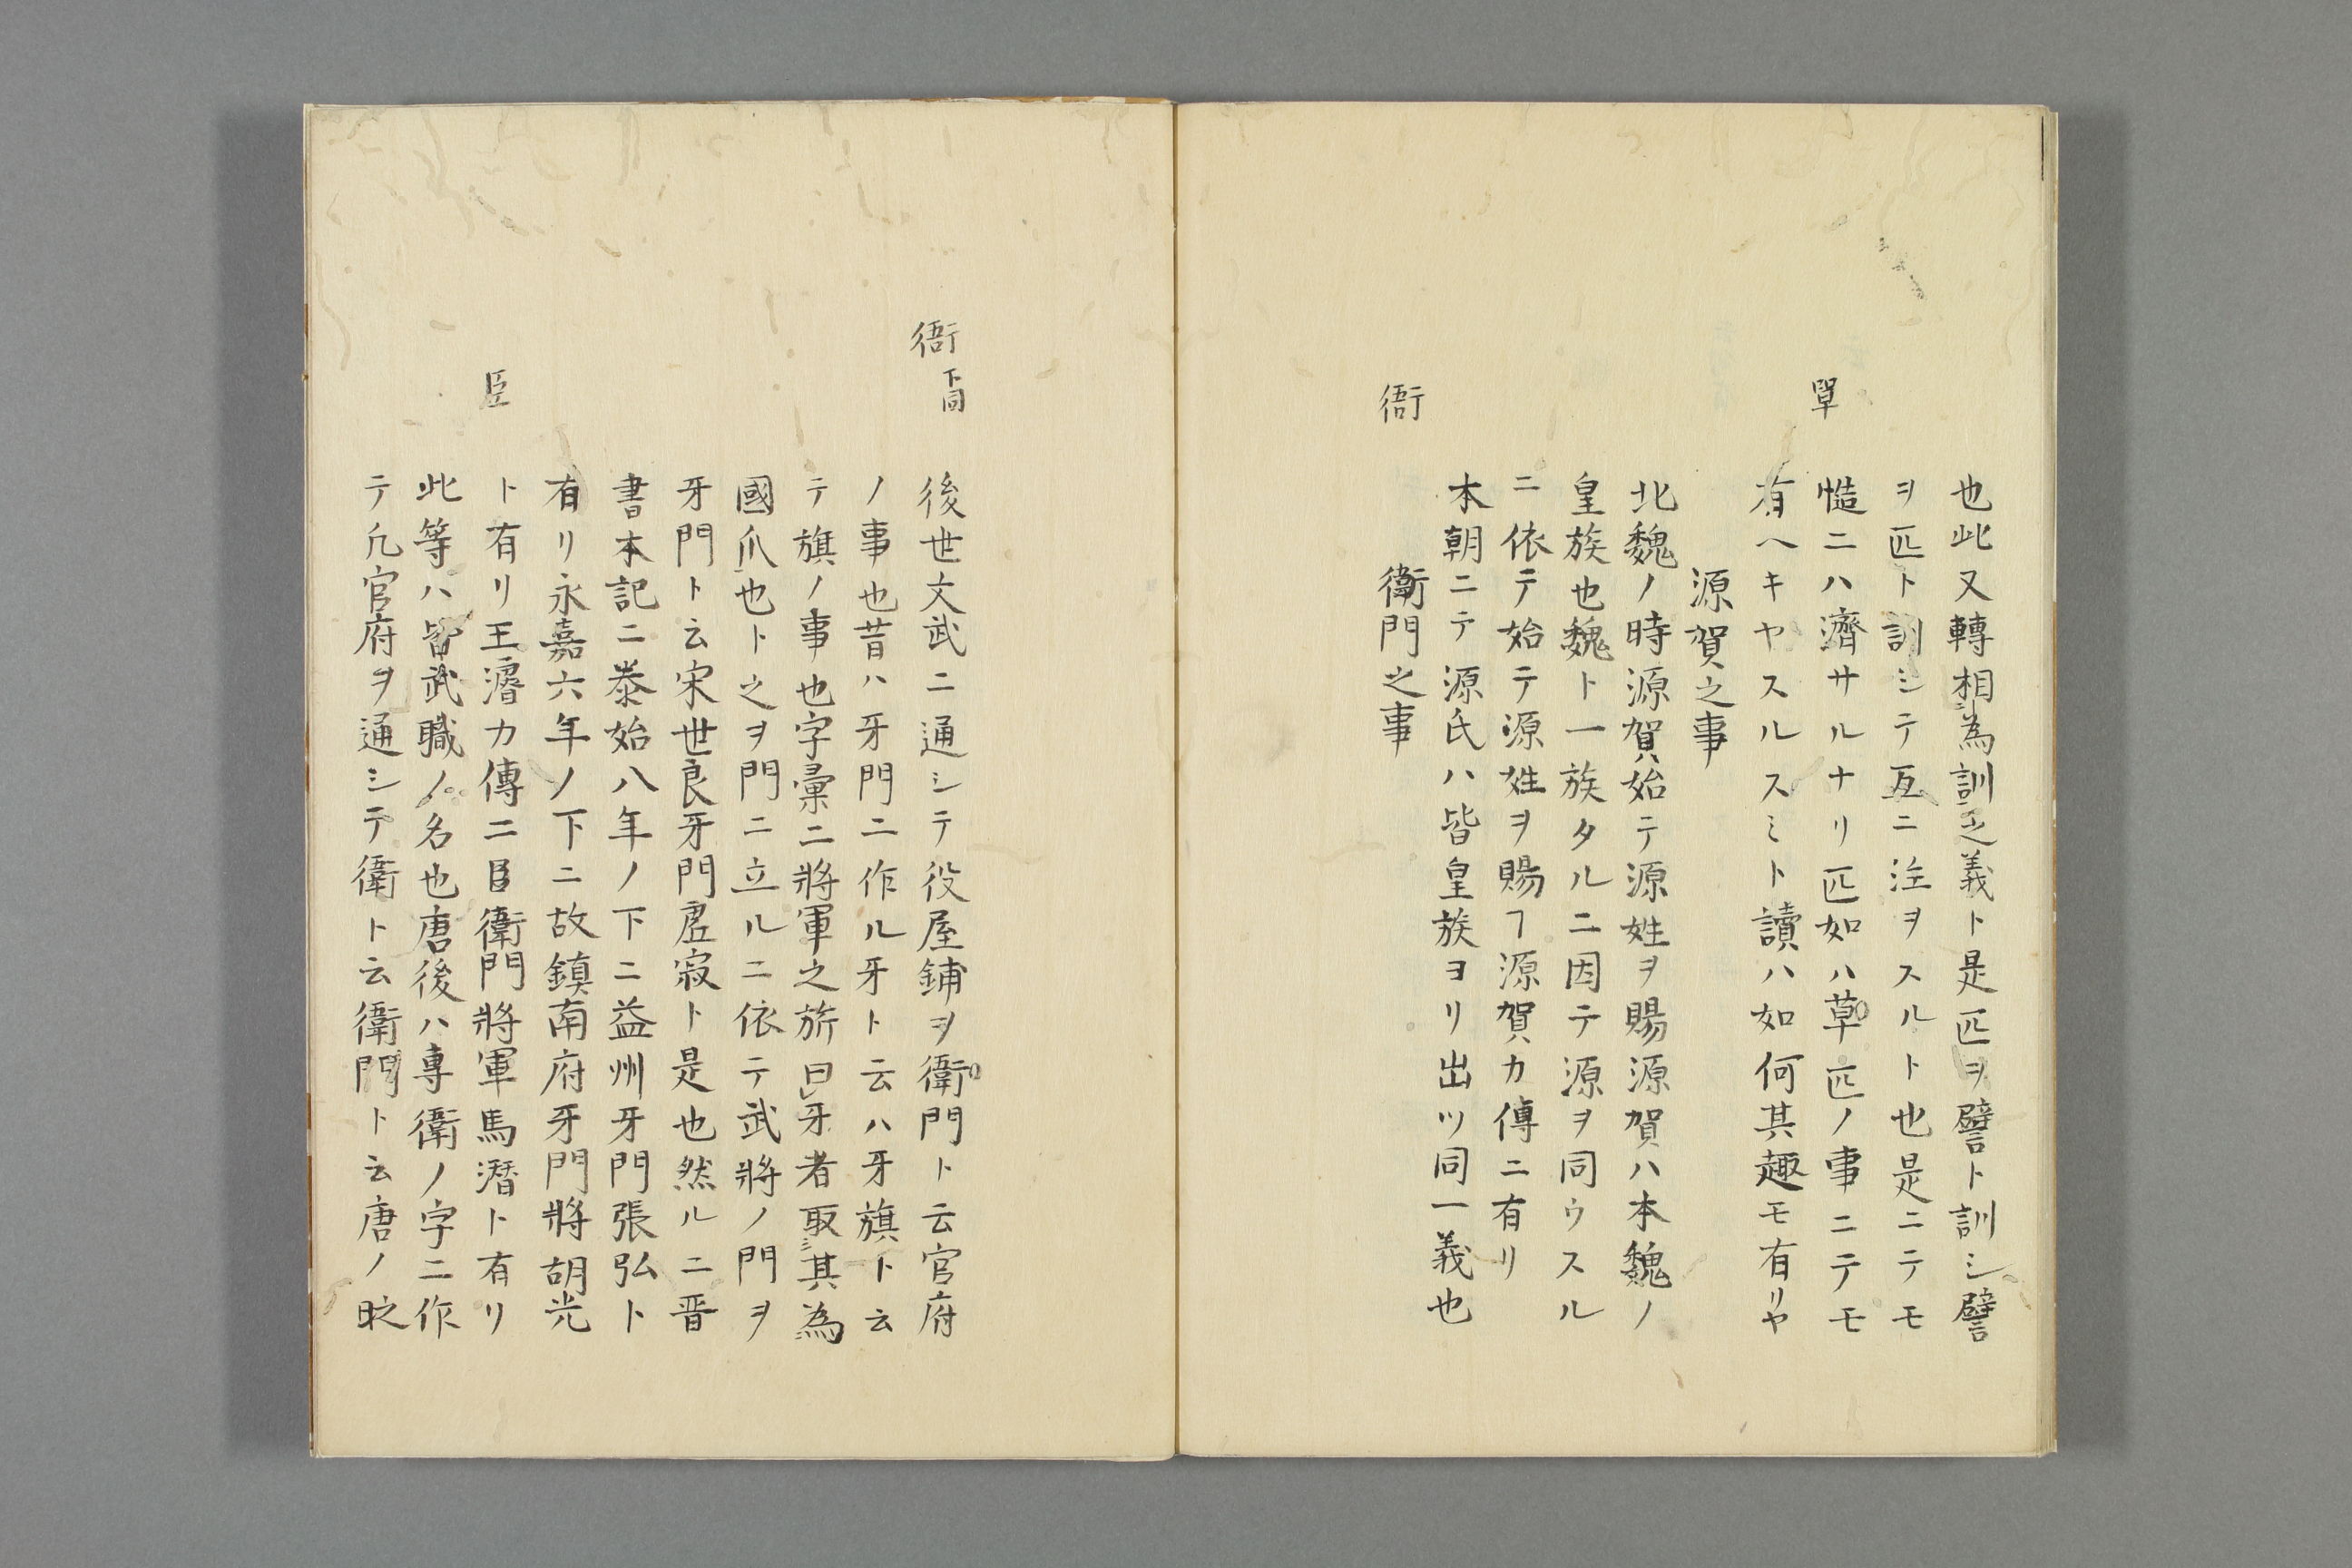 也此又轉相為訓之義ト是匹ヲ譬ト訓シ譬
ヲ匹ト訓シテ互ニ注ヲスルト也是ニテモ
單
慥ニハ濟サルナリ匹如ハ草匹ノ事ニテモ
有ヘキヤスルスミト讀ハ如何其趣モ有リヤ
源賀之事
北魏ノ時源賀始テ源姓ヲ賜源賀ハ本魏ノ
皇族也魏ト一族タルニ因テ源ヲ同ウスル
ニ依テ始テ源姓ヲ賜ヿ源賀カ傳ニ有リ
本朝ニテ源氏ハ皆皇族ヨリ出ツ同一義也
衙
衛門之事
衙下同
後世文武ニ通シテ役屋鋪ヲ衛門ト云官府
ノ事也昔ハ牙門ニ作ル牙ト云ハ牙旗ト云
テ旗ノ事也字彙ニ將軍之旂曰牙者取其為
國爪也ト之ヲ門ニ立ルニ依テ武將ノ門ヲ
牙門ト云宋世良牙門虗寂ト是也然ルニ晋
書本記ニ泰始八年ノ下ニ益州牙門張弘ト
有リ永嘉六年ノ下ニ故鎮南府牙門將胡光
臣
ト有リ王濬カ傳ニ㫖衛門將軍馬潜ト有リ
此等ハ皆武職ノ名也唐後ハ專衛ノ字ニ作
テ凢官府ヲ通シテ衛ト云衛門ト云唐ノ昿